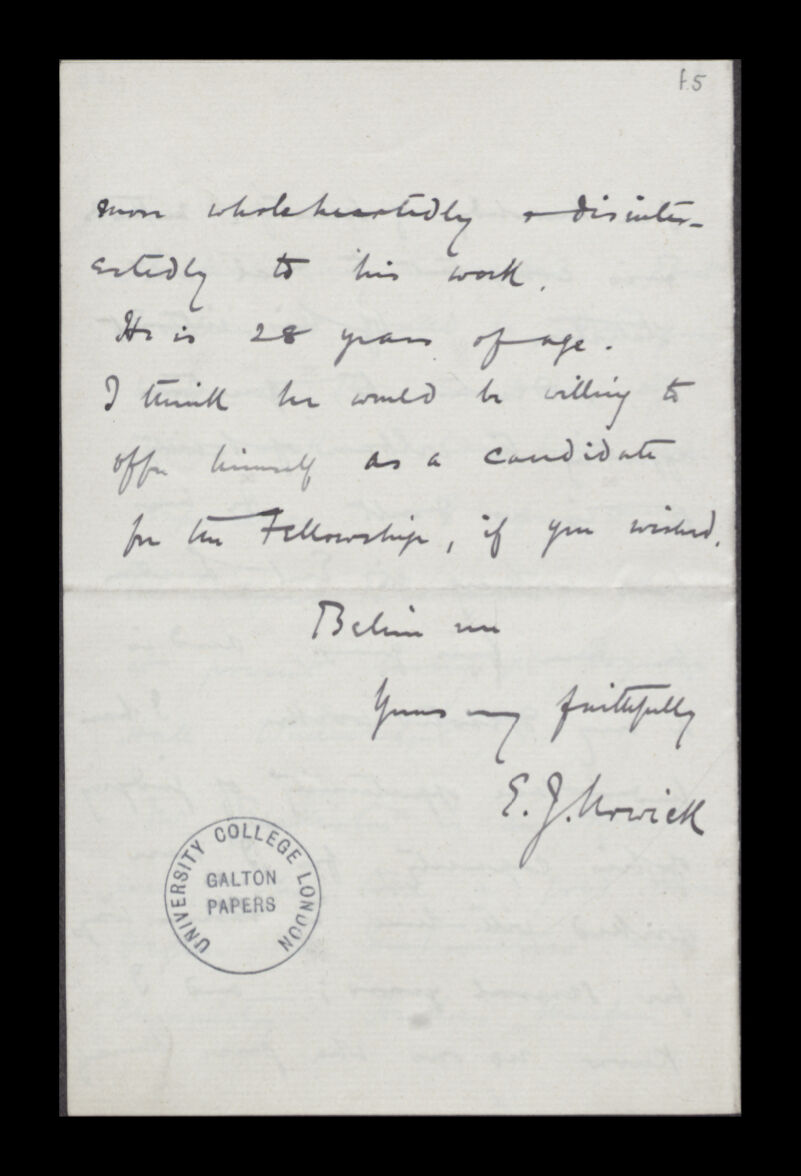 f.5
more wholeheartedly & disinter-
estedly to his work.
He is 28 years of age.
I think he would be willing to
offer himself as a candidate
for the Fellowship, if you wished.
Believe me
Yours very faithfully
E. J. Urwick
UNIVERSITY COLLEGE LONDON
GALTON
PAPERS